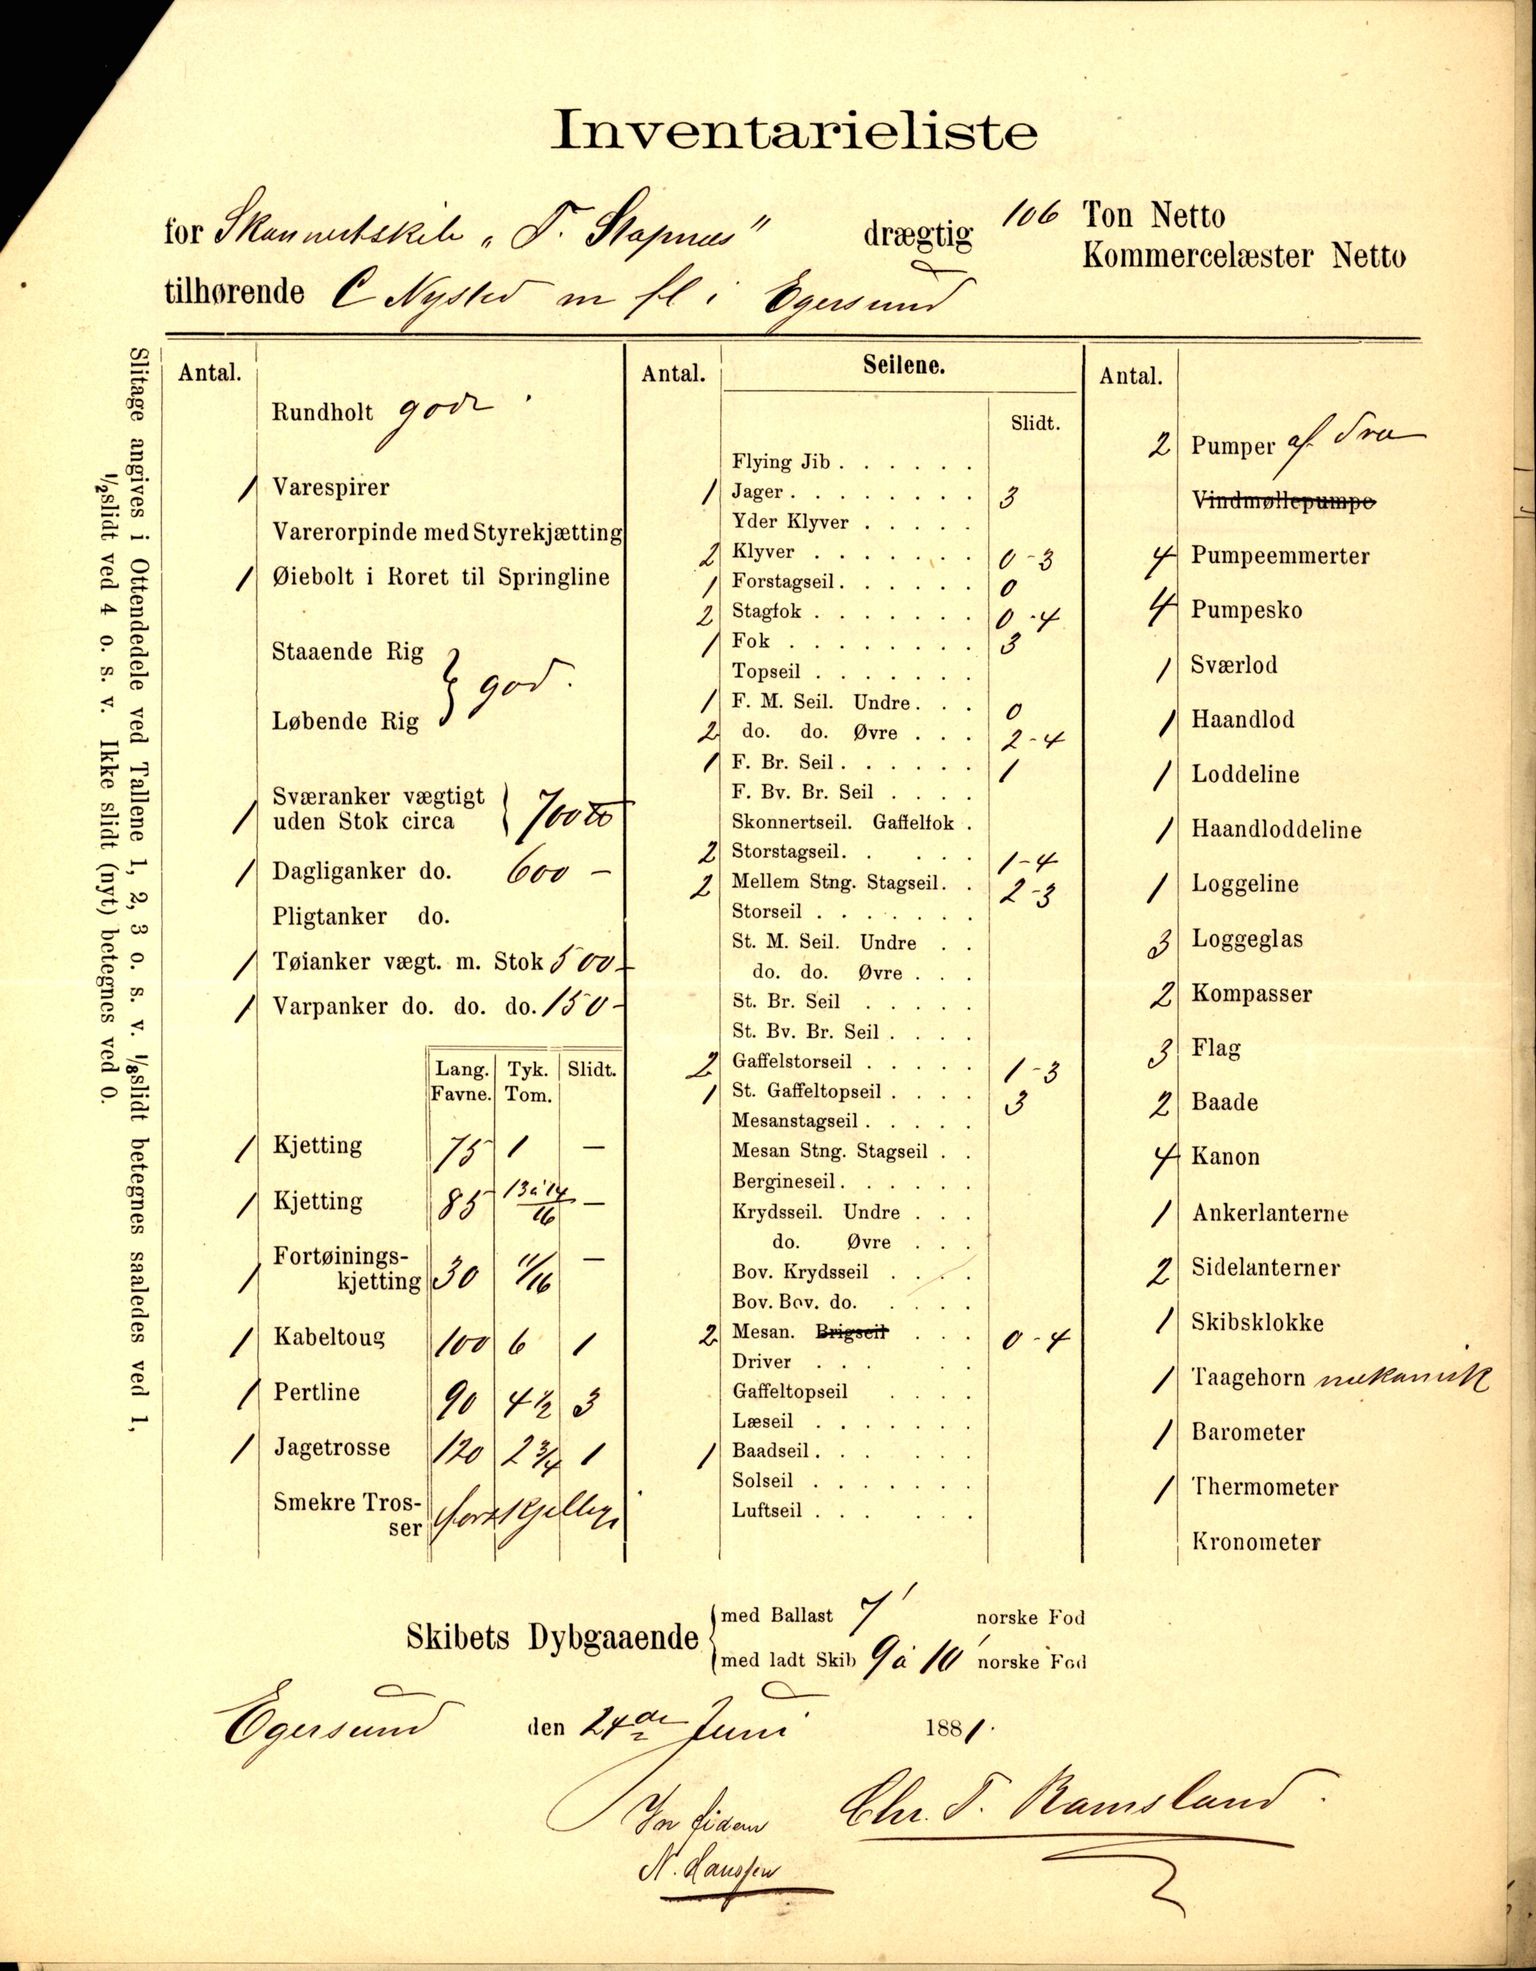 Inventarieliste
for Skonnertskib „T. Stapnes" drægtig 106 Ton Netto
Kommercelæster Netto
tilhørende C Nysted m fl i Egersund
Slitage angives i Ottendedele ved Tallene 1, 2, 3 o. s. v. ⅛slidt betegnes saaledes ved 1,
½slidt ved 4 o. s. v. Ikke slidt (nyt) betegnes ved 0.
Antal.
Rundholt god
1 Varespirer
Varerorpinde med Styrekjætting
1 Øiebolt i Roret til Springline
Staaende Rig
} god.
Løbende Rig
Sværanker vægtigt
1 uden Stok circa } 700 ℔
1 Dagliganker do. 600 –
Pligtanker do.
1 Tøianker vægt. m. Stok 500 –
1 Varpanker do. do. do. 150 –
Lang. Tyk. Slidt.
Favne. Tom.
1 Kjetting 75 1 —
1 Kjetting 85 13 à 14/16 —
Fortøinings-
1 kjetting 30 11/16 —
1 Kabeltoug 100 6 1
1 Pertline 90 4½ 3
1 Jagetrosse 120 2¾ 1
Smekre Tros-
ser forskjellige
Antal. Seilene.
Slidt.
Flying Jib . . . . . .
1 Jager . . . . . . . . 3
Yder Klyver . . . . .
2 Klyver . . . . . . . 0 - 3
1 Forstagseil . . . . . . 0
2 Stagfok . . . . . . . 0 - 4
1 Fok . . . . . . . . 3
Topseil . . . . . . .
1 F. M. Seil. Undre . . . 0
2 do. do. Øvre . . . 2 - 4
1 F. Br. Seil . . . . . . 1
F. Bv. Br. Seil . . . .
Skonnertseil. Gaffelfok .
2 Storstagseil . . . . . 1 - 4
2 Mellem Stng. Stagseil . . 2 - 3
Storseil . . . . . . .
St. M. Seil. Undre . .
do. do. Øvre . . .
St. Br. Seil . . . . .
St. Bv. Br. Seil . . . .
2 Gaffelstorseil . . . . . 1 - 3
1 St. Gaffeltopseil . . . . 3
Mesanstagseil . . . . .
Mesan Stng. Stagseil . .
Bergineseil . . . . . .
Krydsseil. Undre . . .
do. Øvre . . .
Bov. Krydsseil . . . .
Bov. Bov. do. . . . .
2 Mesan. Brigseil . . . 0 - 4
Driver . . . . .
Gaffeltopseil . . . .
Læseil . . . . . . .
1 Baadseil . . . . . .
Solseil . . . . . . .
Luftseil . . . . . .
Antal.
2 Pumper af Træ
Vindmøllepumpe
4 Pumpeemmerter
4 Pumpesko
1 Sværlod
1 Haandlod
1 Loddeline
1 Haandloddeline
1 Loggeline
3 Loggeglas
2 Kompasser
3 Flag
2 Baade
4 Kanon
1 Ankerlanterne
2 Sidelanterner
1 Skibsklokke
1 Taagehorn mekanisk
1 Barometer
1 Thermometer
Kronometer
Skibets Dybgaaende { med Ballast 7' norske Fod
med ladt Skib 9 à 10' norske Fod
Egersund den 24de Juni 1881.
In fidem Chr. T. Ramsland.
N. Hanssen